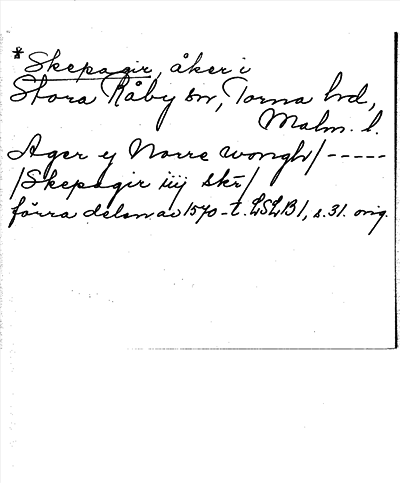 * Skepagir, åker i
Stora Råby sn, Torna hd,
Malm. l.
Ager ej Norre wongh/ -----
/Skepagir iiij skr/
förra delen av 1570-t. LSLB1, s. 31. orig.